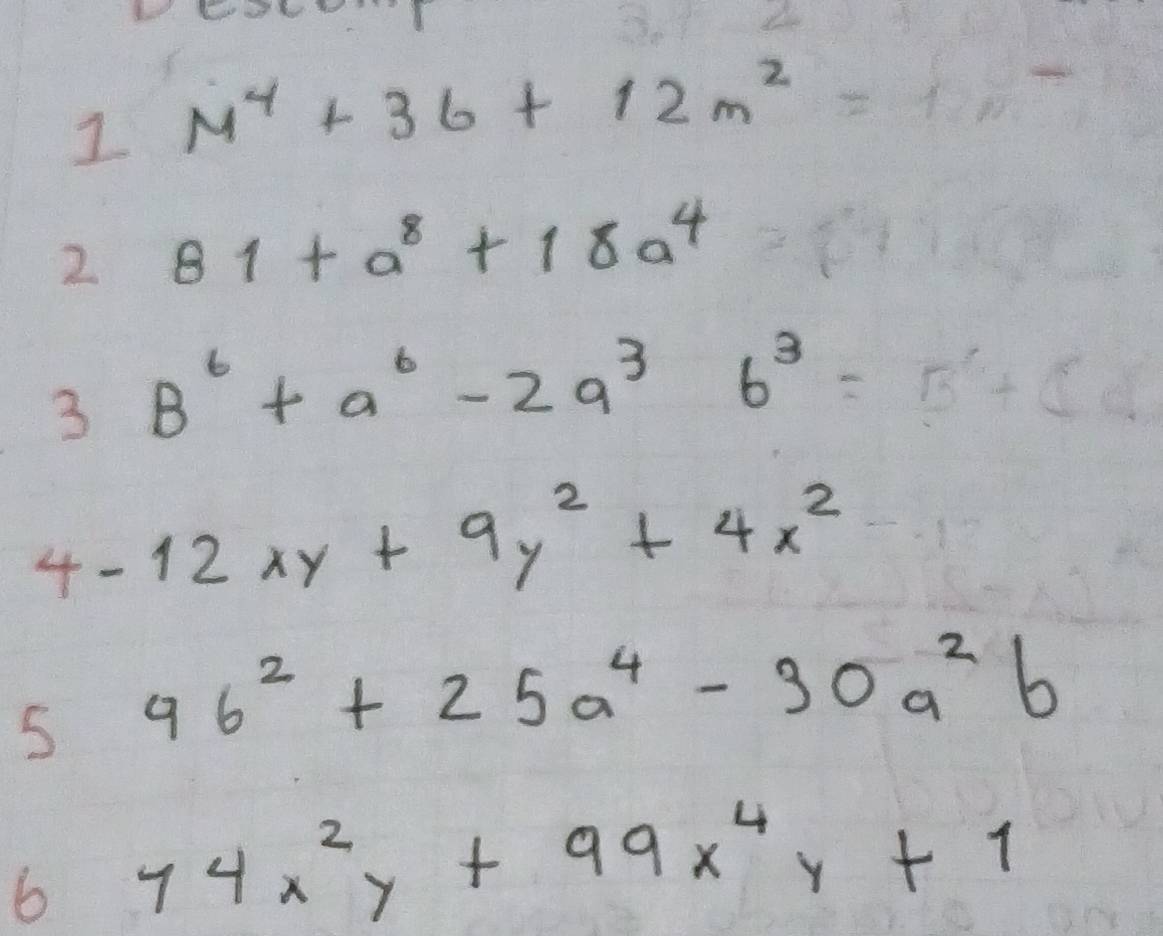 1 M⁴ + 36 + 12m² =
2 81 + a⁸ + 18a⁴ =
3 B⁶ + a⁶ - 2a³ b³ =
4 - 12xy + 9y² + 4x²
5 9b² + 25a⁴ - 30a²b
6 74x²y + 99x⁴y + 1